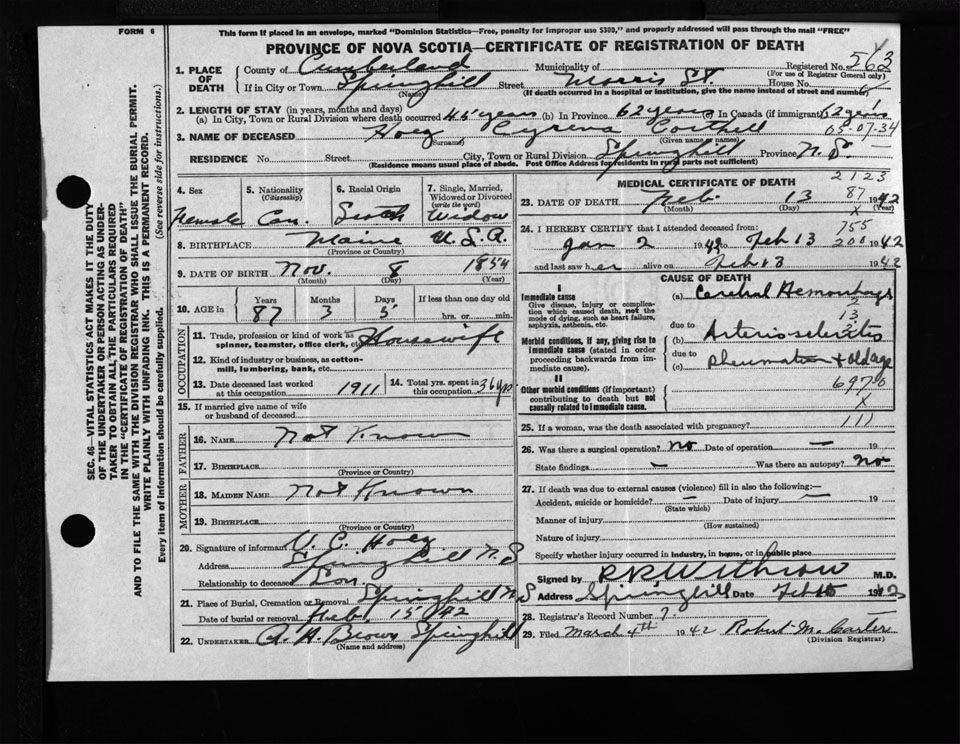 FORM 6
This form if placed in an envelope, marked "Dominion Statistics—Free, penalty for improper use $300," and properly addressed will pass through the mail "FREE"
PROVINCE OF NOVA SCOTIA—CERTIFICATE OF REGISTRATION OF DEATH
Registered No. 563
(For use of Registrar General only)
1. PLACE OF DEATH County of Cumberland Municipality of
If in City or Town Springhill Street Morris St. House No.
(Name) (If death occurred in a hospital or institution, give the name instead of street and number)
2. LENGTH OF STAY (in years, months and days)
(a) In City, Town or Rural Division where death occurred 45 years (b) In Province 62 years (c) In Canada (if immigrant) 62 years
3. NAME OF DECEASED Hoeg Cyrena Corthell 65-07-34
(Surname) (Given name or names)
RESIDENCE No. Street City, Town or Rural Division Springhill Province N.S.
(Residence means usual place of abode. Post Office Address for residents in rural parts not sufficient)
SEC. 46—VITAL STATISTICS ACT MAKES IT THE DUTY OF THE UNDERTAKER OR PERSON ACTING AS UNDERTAKER TO OBTAIN ALL THE PARTICULARS REQUIRED IN THE "CERTIFICATE OF REGISTRATION OF DEATH" AND TO FILE THE SAME WITH THE DIVISION REGISTRAR WHO SHALL ISSUE THE BURIAL PERMIT.
WRITE PLAINLY WITH UNFADING INK. THIS IS A PERMANENT RECORD.
Every item of information should be carefully supplied. (See reverse side for instructions.)
4. Sex Female
5. Nationality (Citizenship) Can.
6. Racial Origin Scotch
7. Single, Married, Widowed or Divorced (write the word) Widow
8. BIRTHPLACE Maine U.S.A.
(Province or Country)
9. DATE OF BIRTH Nov. 8 1854
(Month) (Day) (Year)
10. AGE in Years 87 Months 3 Days 5 If less than one day old hrs. or min.
OCCUPATION
11. Trade, profession or kind of work as spinner, teamster, office clerk, etc. Housewife
12. Kind of industry or business, as cotton-mill, lumbering, bank, etc.
13. Date deceased last worked at this occupation 1911
14. Total yrs. spent in this occupation 36 yrs
15. If married give name of wife or husband of deceased
FATHER
16. NAME Not Known
17. BIRTHPLACE
(Province or Country)
MOTHER
18. MAIDEN NAME Not Known
19. BIRTHPLACE
(Province or Country)
20. Signature of informant V. C. Hoeg
Address Springhill N.S
Relationship to deceased Son
21. Place of Burial, Cremation or Removal Springhill N.S
Date of burial or removal Feb. 15 1942
22. UNDERTAKER A. H. Brown Springhill
(Name and address)
MEDICAL CERTIFICATE OF DEATH 2123
23. DATE OF DEATH Feb. 13 1942
87
(Month) (Day) (Year)
X
24. I HEREBY CERTIFY that I attended deceased from: 755
Jan 2 1942 to Feb 13 1942
200
and last saw her alive on Feb 13 1942
CAUSE OF DEATH
I
Immediate cause
Give disease, injury or complication which caused death, not the mode of dying, such as heart failure, asphyxia, asthenia, etc.
(a) Cerebral Hemorrhage
13
due to
Morbid conditions, if any, giving rise to immediate cause (stated in order proceeding backwards from immediate cause).
(b) Arterio-scleritis
due to
(c) Rheumatism + old age
II
Other morbid conditions (if important) contributing to death but not causally related to immediate cause.
6970
X
25. If a woman, was the death associated with pregnancy? 111
26. Was there a surgical operation? No Date of operation — 19
State findings — Was there an autopsy? No
27. If death was due to external causes (violence) fill in also the following:—
Accident, suicide or homicide? — Date of injury — 19
(State which)
Manner of injury
(How sustained)
Nature of injury
Specify whether injury occurred in industry, in home, or in public place
Signed by R R Withrow M.D.
Address Springhill Date Feb 15 1942
28. Registrar's Record Number 7.
29. Filed March 4th 1942 Robert M.
(Division Registrar)